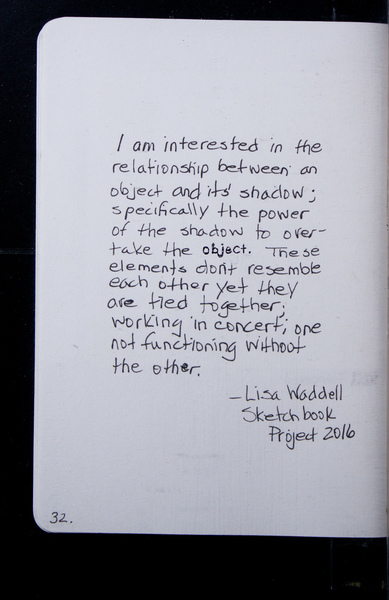 I am interested in the
relationship between an
object and its' shadow;
specifically the power
of the shadow to over-
take the object. These
elements don't resemble
each other yet they
are tied together;
working in concert; one
not functioning without
the other.
– Lisa Waddell
Sketchbook
Project 2016
32.